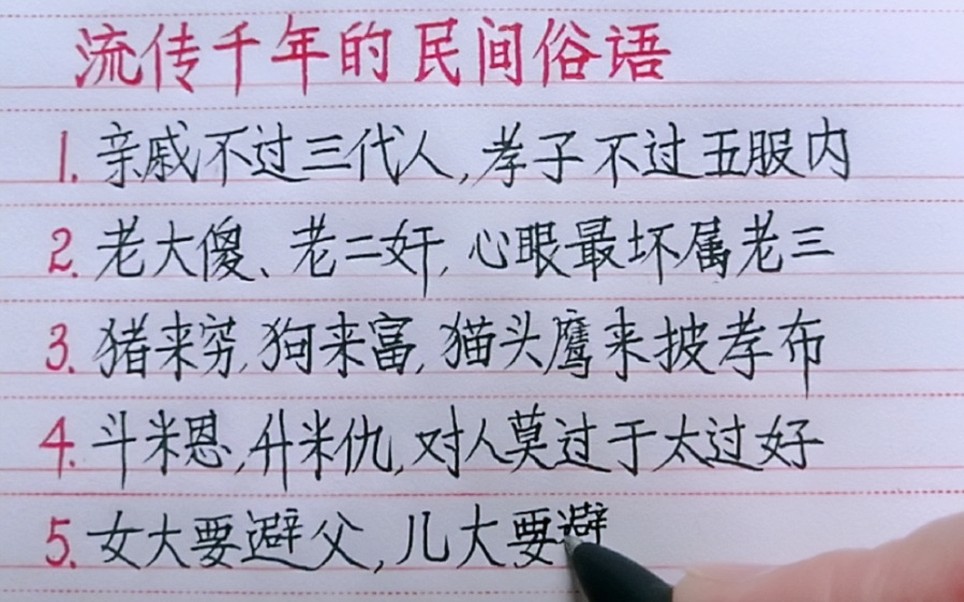 流传千年的民间俗语
1. 亲戚不过三代人,孝子不过五服内
2. 老大傻、老二奸,心眼最坏属老三
3. 猪来穷,狗来富,猫头鹰来披孝布
4. 斗米恩,升米仇,对人莫过于太过好
5. 女大要避父,儿大要避